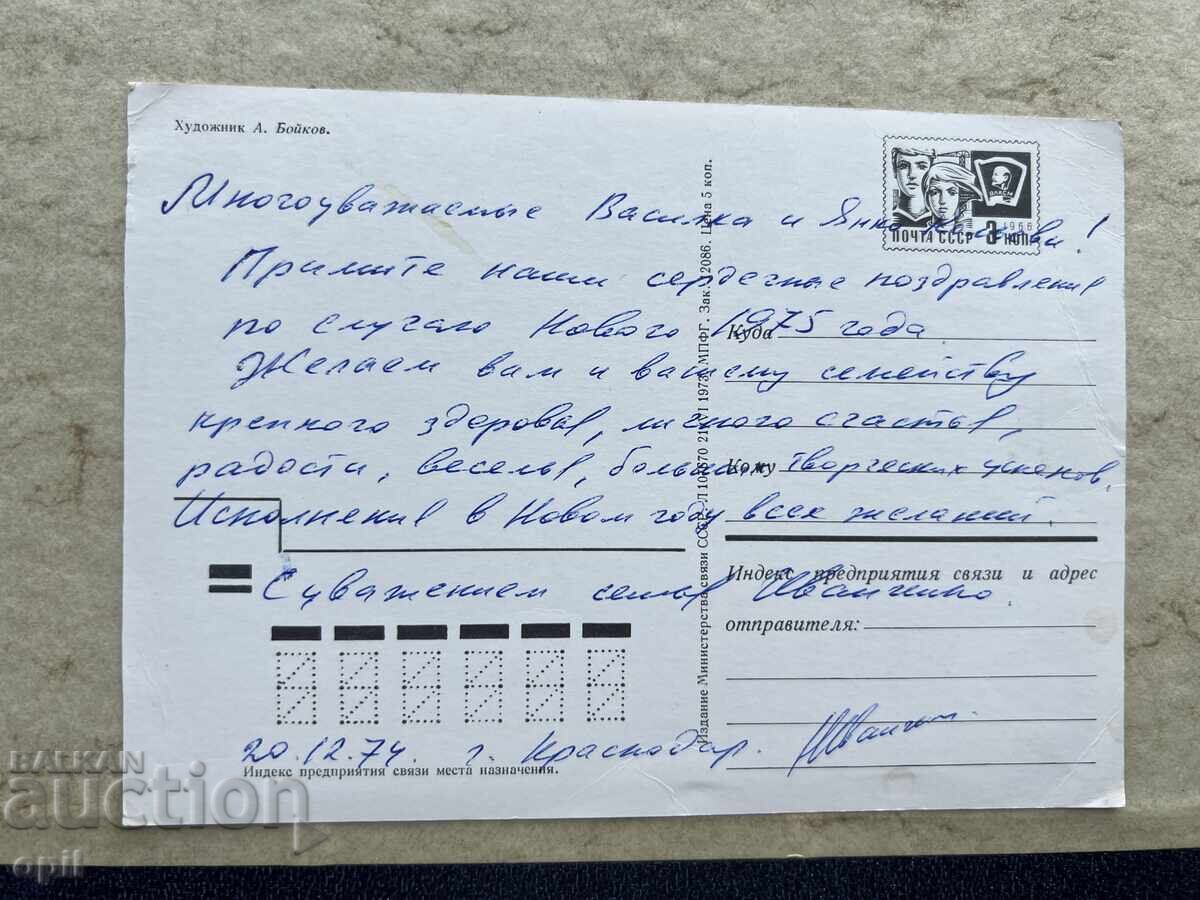 Художник А. Бойков.
ВЛКСМ
1966
ПОЧТА СССР 3 КОП.
Многоуважаемые Василка и Янко !
Примите наши сердечные поздравления
по случаю Нового 1975 года
Желаем вам и вашему семейству
крепкого здоровья, личного счастья,
радости, веселья, больших творческих успехов.
Исполнения в Новом году всех желаний.
С уважением семья Иванченко
20.12.74 г. Краснодар.
Куда
Кому
Индекс предприятия связи и адрес
отправителя:
Индекс предприятия связи места назначения.
Издание Министерства связи СССР. МПФГ. Зак. Цена 5 коп.
BALKAN
auction
opil